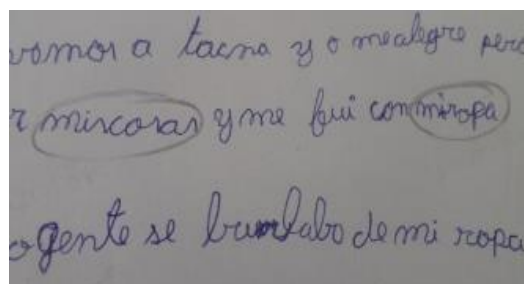 vamos a tacna y o mealegre pero
r miscosas y me fui conmiropa
o gente se burlabo de mi ropa